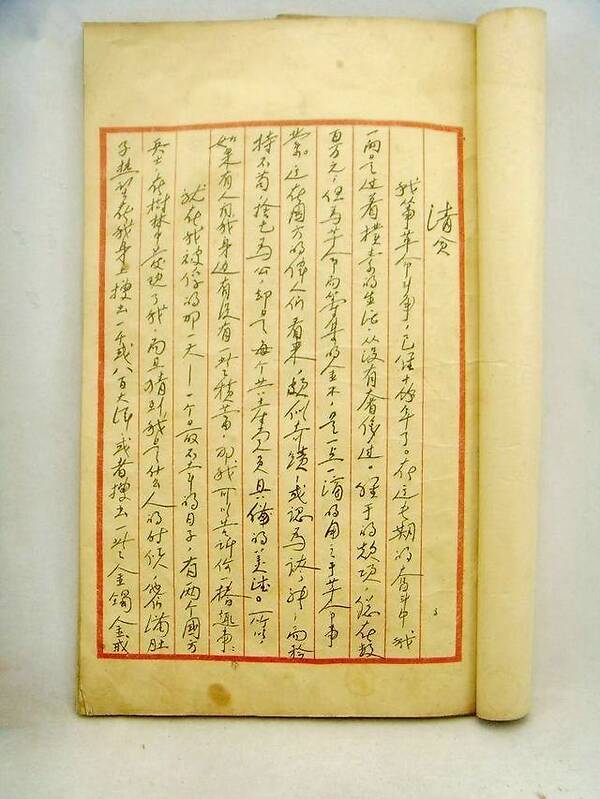 清贫
我從事革命斗争，已经十余年了。在这长期的奮斗中，我
一向是过着樸素的生活，从没有奢侈过。经手的款项，總在数
百万元；但为革命而筹集的金錢，是一点一滴的用之于革命事
業。这在國方的偉人们看来，頗似奇蹟，或認為誇张；而矜
持不苟，捨己为公，却是每个共產党员具備的美德。所以，
如果有人问我身边有没有一些積蓄，那我可以告诉你一樁趣事：
就在我被俘的那一天——一个最不幸的日子，有两个國方
兵士，在樹林中发现了我，而且猜到我是什么人的时候，他们满肚
子热望在我身上搜出一千或八百大洋，或者搜出一些金镯金戒